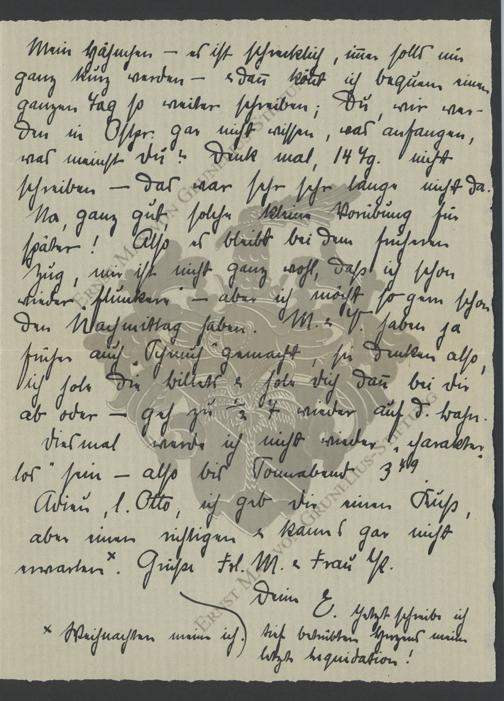 Mein Hähnchen – es ist schrecklich, immer solls nur
ganz kurz werden – & dann könnt ich bequem einen
ganzen Tag so weiter schreiben; Du, wir wer-
den in Ostpr. gar nicht wissen, was anfangen,
was meinst Du? Denk mal, 14 Tg. nicht
schreiben – das war sehr sehr lange nicht da.
Na, ganz gut solche kleine Vorübung für
später! Also es bleibt bei dem früheren
Zug, mir ist nicht ganz wohl, daß ich schon
wieder „flunkere“ – aber ich möcht so gern schon
den Nachmittag haben. M. & V. haben ja
früher auch „Schmuh“ gemacht, sie denken also,
ich hole die Billets & hole Dich dann bei Dir
ab oder – geh zu 7 wieder auf d. Bahn.
Diesmal werde ich nicht wieder „charakter-
los“ sein – also bis Sonnabend 3 49.
Adieu, l. Otto, ich geb Dir einen Kuß,
aber einen richtigen & kanns gar nicht
erwarten x. Grüße Frl. M. & Frau
Deine E. Jetzt schreibe ich
x Weihnachten meine ich. tief betrübten Herzens meine
letzte Liquidation!
ERNST MAX VON GRUNELIUS-STIFTUNG
ERNST MAX VON GRUNELIUS-STIFTUNG